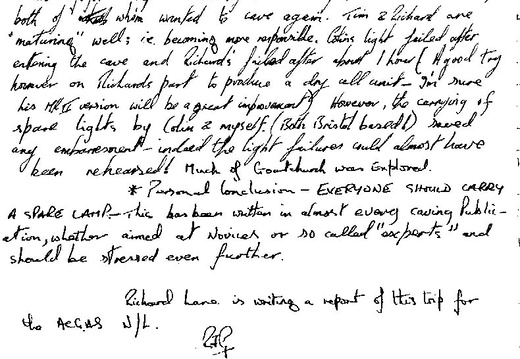 both of whom wanted to cave again. Tim & Richard are
"maturing" well; i.e. becoming more responsible. Colins light failed after
entering the cave and Richard's failed after about 1 hour (A good try
however on Richards part to produce a dry cell unit - I'm sure
his MK II version will be a great improvement). However, the carrying of
spare lights by Colin & myself (Both Bristol based!) saved
any embarrassment - indeed the light failures could almost have
been rehearsed! Much of Goatchurch was Explored.
* Personal Conclusion - EVERYONE SHOULD CARRY
A SPARE LAMP - This has been written in almost every caving Public-
ation, whether aimed at Novices or so called "experts" and
should be stressed even further.
Richard Lane is writing a report of this trip for
the N/L.